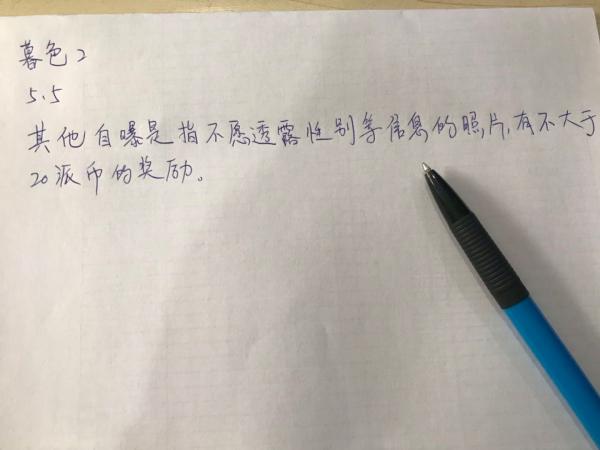 暮色2
5.5
其他自曝是指不愿透露性别等信息的照片,有不大于
20派币的奖励。